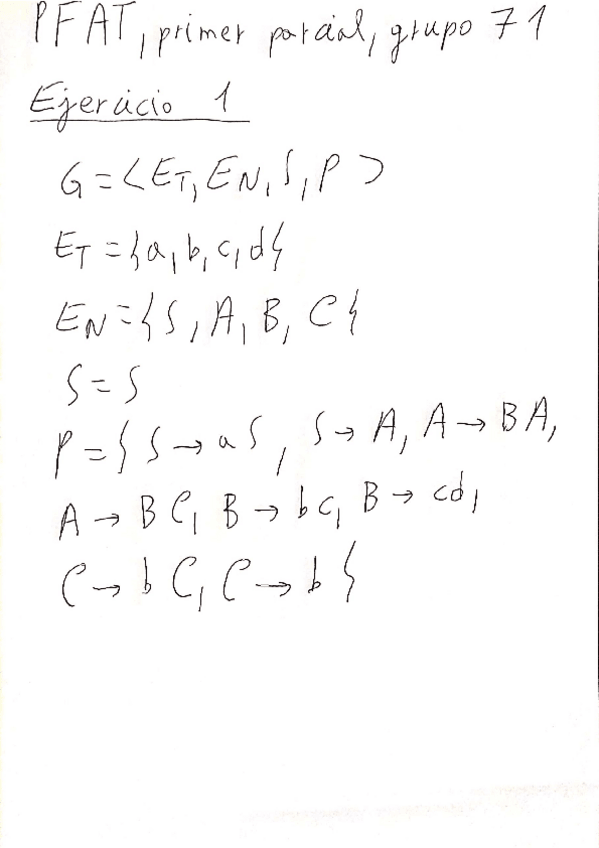 PFAT, primer parcial, grupo 71
Ejercicio 1
G = <E_T, E_N, S, P>
E_T = {a, b, c, d}
E_N = {S, A, B, C}
S = S
P = { S → aS, S → A, A → BA,
A → BC, B → bc, B → cd,
C → bC, C → b }